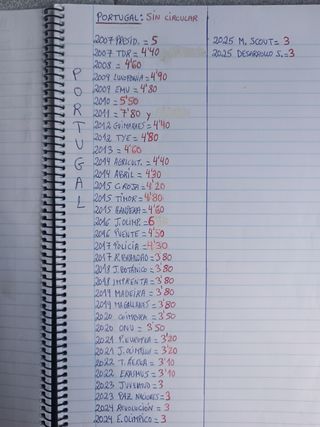 PORTUGAL: SIN CIRCULAR
PORTUGAL
2007 PRESID. = 5
2007 TDR = 4'40
2008 = 4'60
2009 LUSOFONIA = 4'90
2009 EMU = 4'80
2010 = 5'50
2011 = 7'80 y
2012 GUIMARAES = 4'40
2012 TYE = 4'80
2013 = 4'60
2014 AGRICULT. = 4'40
2014 ABRIL = 4'30
2015 C. ROJA = 4'20
2015 TIMOR = 4'80
2015 BANDERA = 4'60
2016 J. OLIMP. = 6
2016 PUENTE = 4'50
2017 POLICIA = 4'30
2017 R. BRANDAO = 3'80
2018 J. BOTÁNICO = 3'80
2018 IMPRENTA = 3'80
2019 MADEIRA = 3'80
2019 MAGALLANES = 3'80
2020 COIMBRA = 3'50
2020 ONU = 3'50
2021 P. EUROPEA = 3'20
2021 J. OLÍMPICOS = 3'20
2022 T. AÉREA = 3'10
2022 ERASMUS = 3'10
2023 JUVENTUD = 3
2023 PAZ NACIONES = 3
2024 REVOLUCIÓN = 3
2024 E. OLÍMPICO = 3
2025 M. SCOUT = 3
2025 DESARROLLO S. = 3